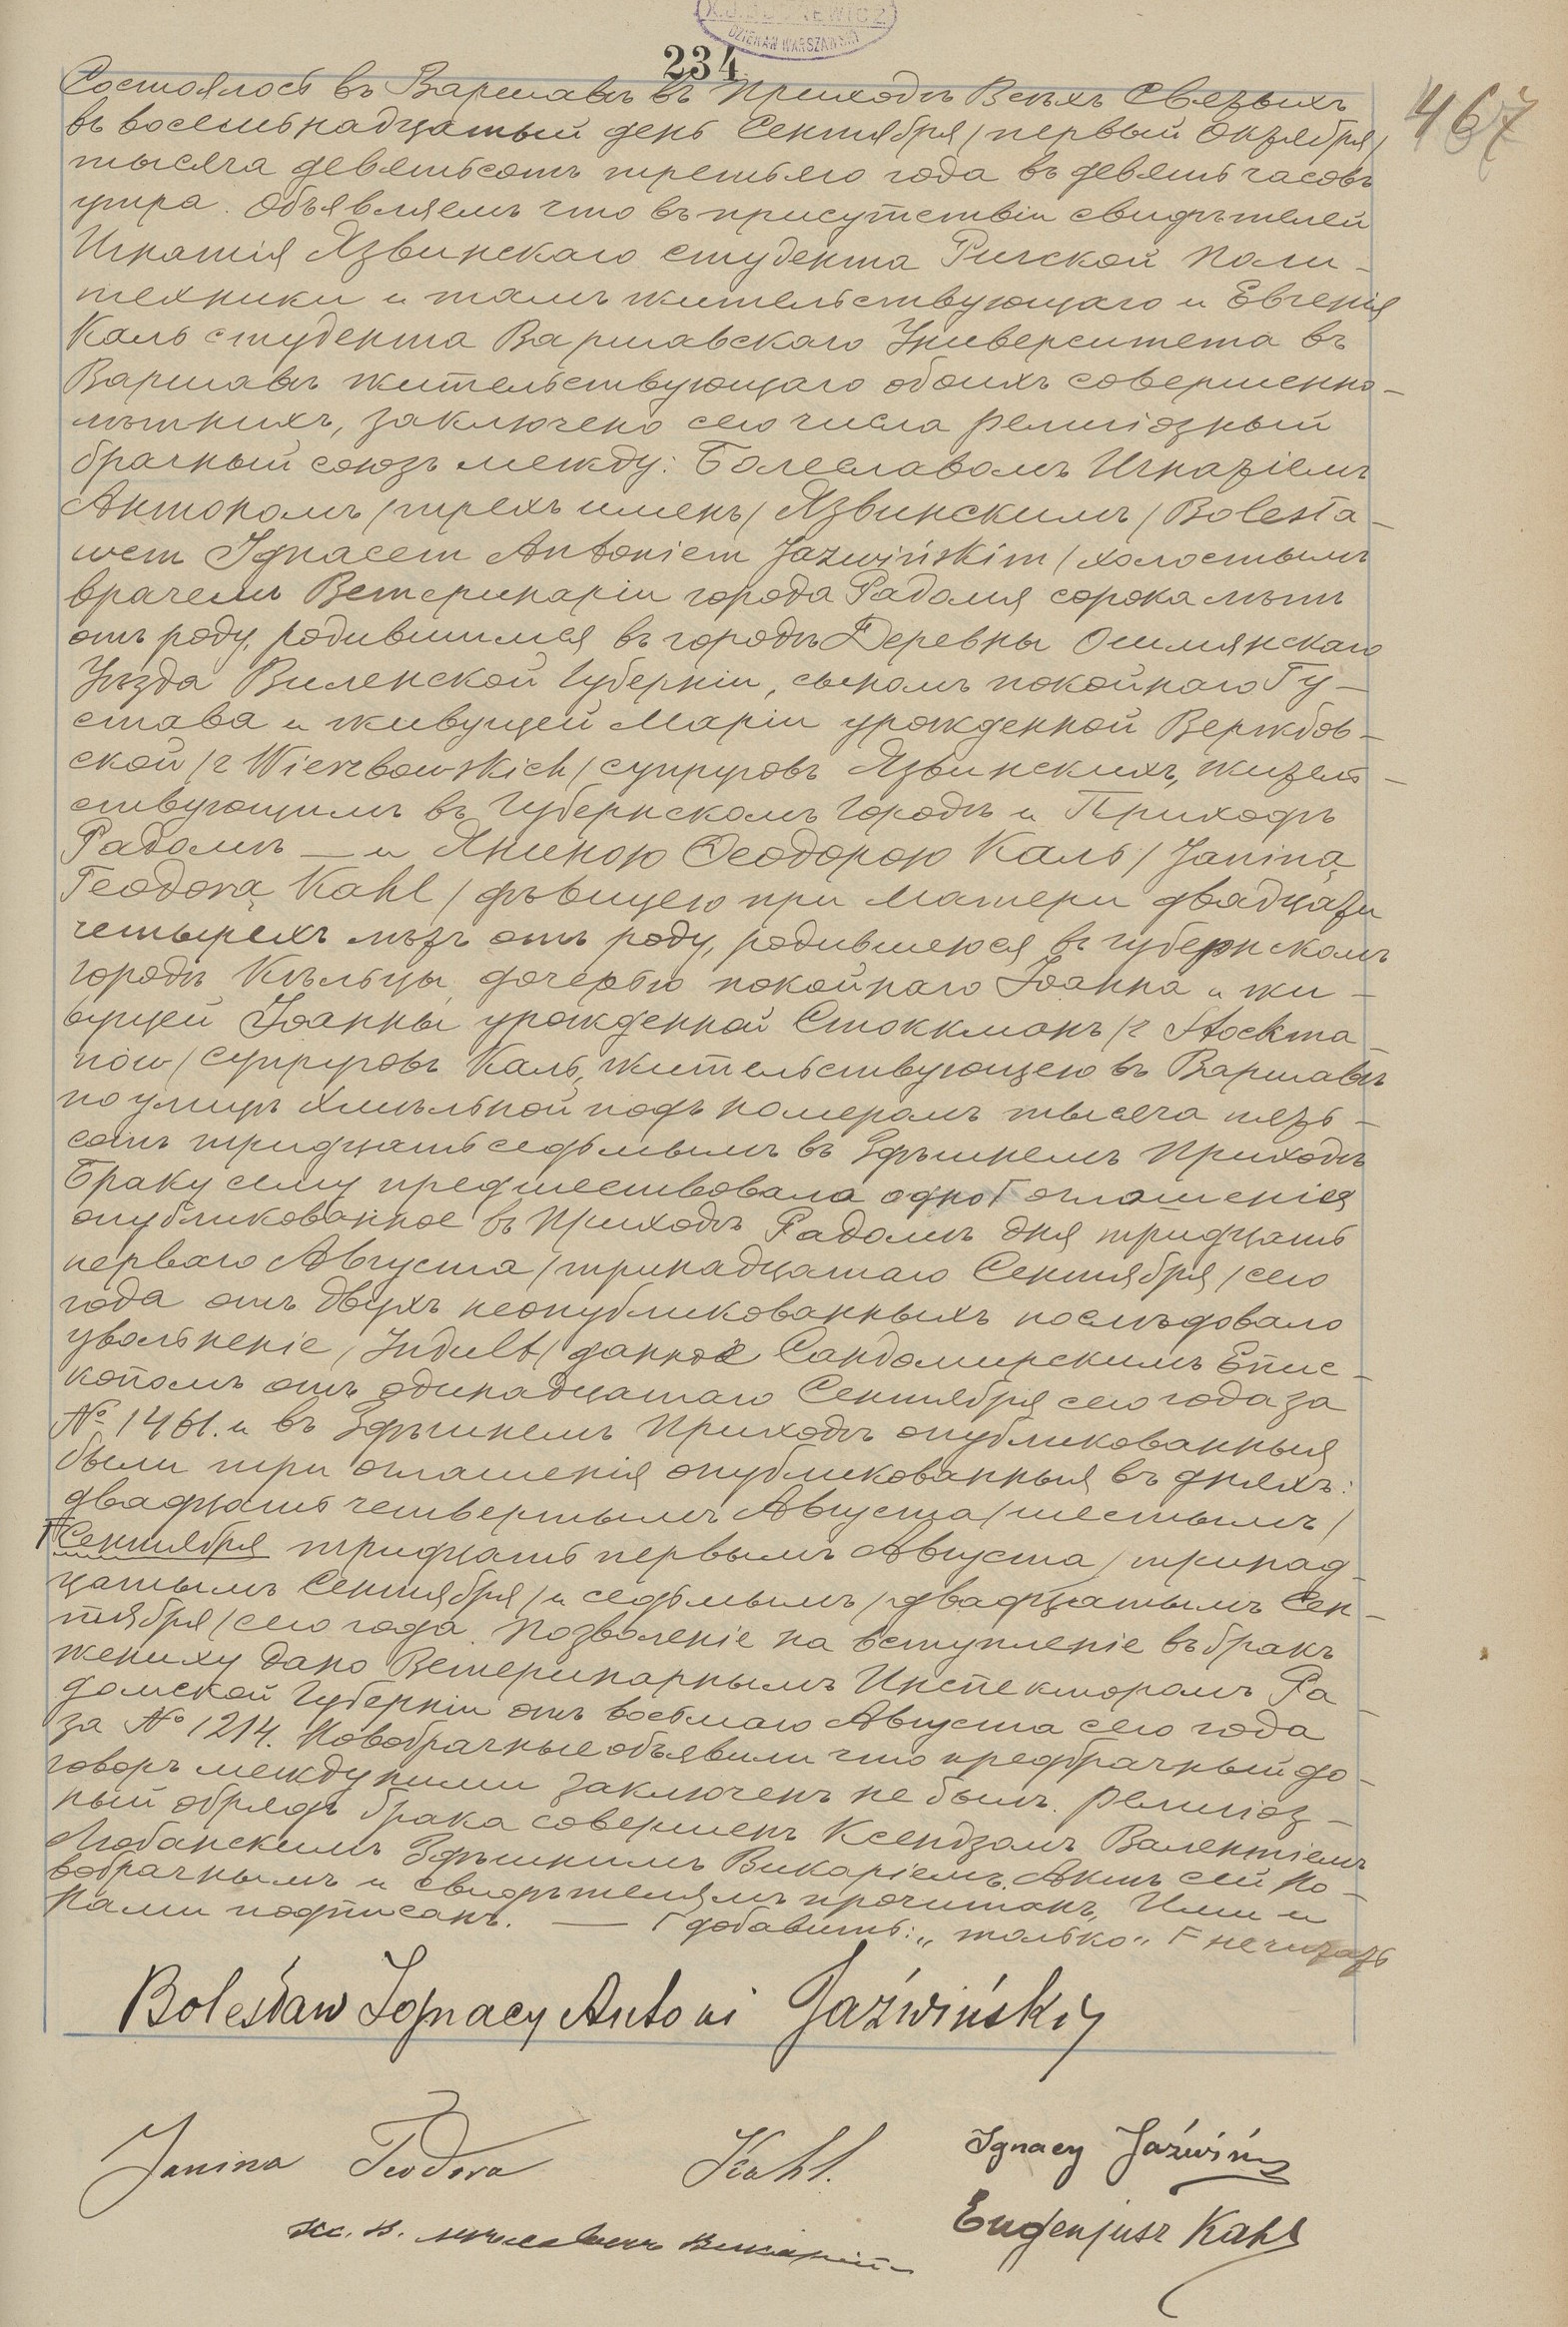 DZIEKAN WARSZAWSKI
234
467
Состоялось въ Варшавѣ въ Приходѣ Всѣхъ Святыхъ
въ восемьнадцатый день Сентября / первый Октября /
тысяча девятьсотъ третьяго года въ девять часовъ
утра. Объявляемъ что въ присутствіи свидѣтелей
Игнатія Язвинскаго студента Рижской Поли-
техники и тамъ жительствующаго и Евгенія
Каль студента Варшавскаго Университета въ
Варшавѣ жительствующаго обоихъ совершенно-
лѣтнихъ, заключено сего числа религіозный
брачный союзъ между: Болеславомъ Игнатіемъ
Антономъ / трехъ именъ / Язвинскимъ / Bolesła-
wem Ignacem Antoniem Jazwińskim / холостымъ
врачемъ Ветеринаріи города Радомя сорока лѣтъ
отъ роду, родившимся въ городѣ Деревны Ошмянскаго
Уѣзда Виленской Губерніи, сыномъ покойнаго Гу-
става и живущей Маріи урожденной Вержбов-
ской / z Wierzbowskich / супруговъ Язвинскихъ, житель-
ствующимъ въ Губернскомъ Городѣ и Приходѣ
Радомѣ — и Яниною Ѳеодорою Каль / Janiną
Teodorą Kahl / дѣвицею при матери двадцати
четырехъ лѣтъ отъ роду, родившеюся въ губернскомъ
городѣ Кѣльцы, дочерью покойнаго Іоанна и жи-
вущей Іоанны урожденной Стоккманъ / z Stockma-
nów / супруговъ Каль, жительствующею въ Варшавѣ
по улицѣ Хмѣльной подъ номеромъ тысяча пять-
сотъ тридцать седьмымъ въ Здѣшнемъ Приходѣ
Браку сему предшествовала одно Г оглашенія
опубликованное въ Приходѣ Радомѣ дня тридцать
перваго Августа / тринадцатаго Сентября / сего
года отъ двухъ неопубликованныхъ послѣдовало
увольненіе / Indult / данное Сандомирскимъ Епис-
копомъ отъ одинадцатаго Сентября сего года за
№ 1461. и въ Здѣшнемъ Приходѣ опубликованныя
были три оглашенія опубликованныя въ дняхъ:
двадцать четвертымъ Августа / шестымъ /
Сентября тридцать первымъ Августа / тринад-
цатымъ Сентября / и седьмымъ / двадцатымъ Сен-
тября / сего года. Позволеніе на вступленіе въ бракъ
жениху дано Ветеринарнымъ Инспекторомъ Ра-
домской Губерніи отъ восьмаго Августа сего года
за № 1214. Новобрачные объявили что предбрачный до-
говоръ между ними заключенъ не былъ. Религіоз-
ный обрядъ брака совершенъ Ксендзомъ Валентіемъ
Любанскимъ Здѣшнимъ Викаріемъ. Актъ сей Но-
вобрачнымъ и свидѣтелямъ прочитанъ, Ими и
Нами подписанъ. — Г добавить: „только“ F не читать
Bolesław Ignacy Antoni Jaźwiński
Janina Teodora Kahl.
Ignacy Jaźwiński
Eugenjusz Kahl